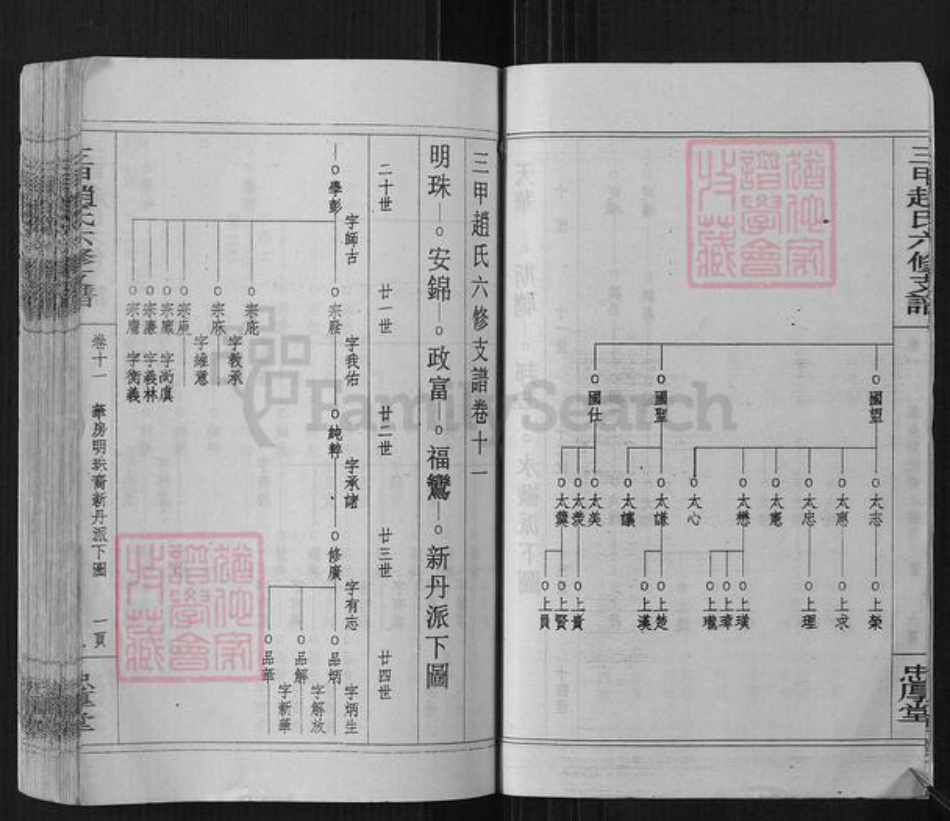 三甲趙氏六修支譜
忠厚堂
國望
國聖
國仕
太志
太惠
太忠
太憲
太懋
太心
太謙
太讓
太美
太羨
太羹
上榮
上求
上理
上璞
上瑋
上瓏
上楚
上漢
上貴
上賢
上員
三甲趙氏六修支譜卷十一
明珠—安錦—政富—福鸞—新丹派下圖
二十世
廿一世
廿二世
廿三世
廿四世
學彭
字師古
字我佑
純粹
字承諸
修廣
字有志
品炳
字炳生
品解
字解放
品華
字新華
宗庇
字教承
宗庥
字維意
宗庾
宗廉
字義林
字衡義
卷十一
華房明珠裔新丹派下圖
一頁
忠厚堂
猶他家譜學會收藏
猶他家譜學會收藏
FamilySearch